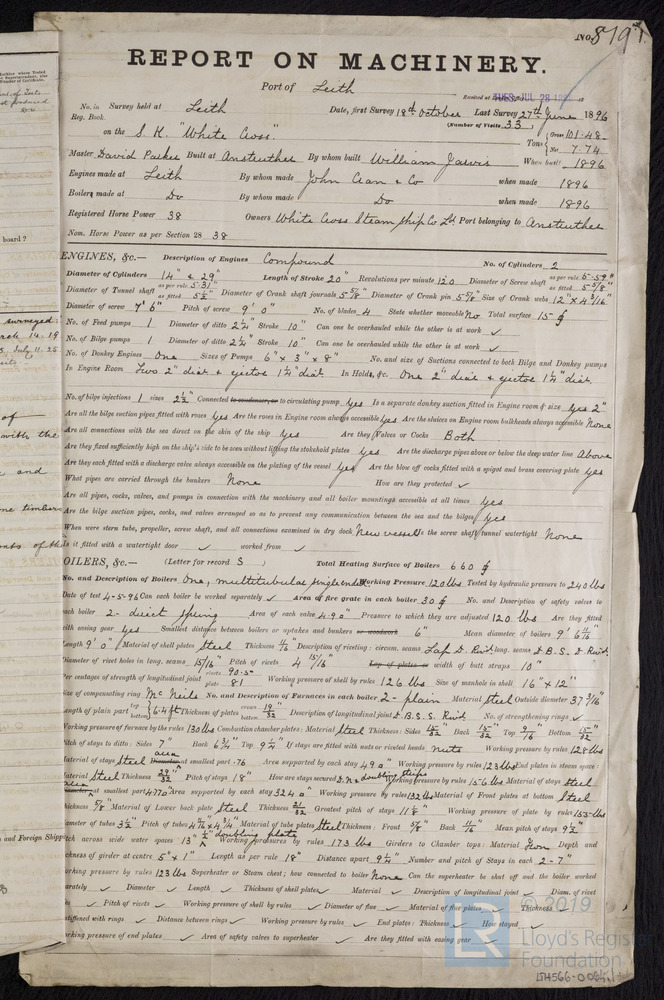 No. 8791
REPORT ON MACHINERY.
Port of Leith
Received at TUES. JUL 28 18
No. in Survey held at Leith Date, first Survey 18th October Last Survey 27th June 1896
Reg. Book. (Number of Visits 33)
on the S. K. "White Cross" Tons Gross 101.48 Net 7.74
Master David Parker Built at Anstruther By whom built William Jarvis When built 1896
Engines made at Leith By whom made John Cran & Co when made 1896
Boilers made at Do By whom made Do when made 1896
Registered Horse Power 38 Owners White Cross Steam Ship Co Ld Port belonging to Anstruther
Nom. Horse Power as per Section 28 38
ENGINES, &c.— Description of Engines Compound No. of Cylinders 2
Diameter of Cylinders 14" & 29" Length of Stroke 20" Revolutions per minute 120 Diameter of Screw shaft as per rule 5.59" as fitted 5 5/8"
Diameter of Tunnel shaft as per rule 5.31" as fitted 5 1/2" Diameter of Crank shaft journals 5 5/8" Diameter of Crank pin 5 5/8" Size of Crank webs 12" x 4 3/16"
Diameter of screw 7' 6" Pitch of screw 9' 0" No. of blades 4 State whether moveable No Total surface 15
No. of Feed pumps 1 Diameter of ditto 2 1/4" Stroke 10" Can one be overhauled while the other is at work ✓
No. of Bilge pumps 1 Diameter of ditto 2 1/4" Stroke 10" Can one be overhauled while the other is at work ✓
No. of Donkey Engines One Sizes of Pumps 6" x 3" x 8" No. and size of Suctions connected to both Bilge and Donkey pumps
In Engine Room Two 2" diar & ejector 1 1/4" diar In Holds, &c. One 2" diar & ejector 1 1/4" diar.
No. of bilge injections 1 sizes 2 1/2" Connected to condenser, or to circulating pump Yes Is a separate donkey suction fitted in Engine room & size Yes 2"
Are all the bilge suction pipes fitted with roses Yes Are the roses in Engine room always accessible Yes Are the sluices on Engine room bulkheads always accessible None
Are all connections with the sea direct on the skin of the ship Yes Are they Valves or Cocks Both
Are they fixed sufficiently high on the ship's side to be seen without lifting the stokehold plates Yes Are the discharge pipes above or below the deep water line Above
Are they each fitted with a discharge valve always accessible on the plating of the vessel Yes Are the blow off cocks fitted with a spigot and brass covering plate Yes
What pipes are carried through the bunkers None How are they protected ✓
Are all pipes, cocks, valves, and pumps in connection with the machinery and all boiler mountings accessible at all times Yes
Are the bilge suction pipes, cocks, and valves arranged so as to prevent any communication between the sea and the bilges Yes
When were stern tube, propeller, screw shaft, and all connections examined in dry dock New vessel Is the screw shaft tunnel watertight None
Is it fitted with a watertight door ✓ worked from ✓
OILERS, &c.— (Letter for record S) Total Heating Surface of Boilers 660
No. and Description of Boilers One, multitubular single ended Working Pressure 120 lbs Tested by hydraulic pressure to 240 lbs
Date of test 4-5-96 Can each boiler be worked separately ✓ Area of fire grate in each boiler 30 No. and Description of safety valves to
each boiler 2 - direct Spring Area of each valve 4.90" Pressure to which they are adjusted 120 lbs Are they fitted
with easing gear Yes Smallest distance between boilers or uptakes and bunkers or woodwork 6" Mean diameter of boilers 9' 6
Length 9' 0" Material of shell plates Steel Thickness Description of riveting: circum. seams Lap D. Rivd. long. seams D.B.S. D. Rivd.
Diameter of rivet holes in long. seams 15/16" Pitch of rivets 4 15/16 Lap of plates or width of butt straps 10"
Per centages of strength of longitudinal joint rivets 90.5 plate 81 Working pressure of shell by rules 126 lbs Size of manhole in shell 16" x 12"
Size of compensating ring McNeils No. and Description of Furnaces in each boiler 2 - plain Material Steel Outside diameter 37 3/16"
Length of plain part top bottom 6.4 ft Thickness of plates crown bottom 19/32" Description of longitudinal joint D.B.S.S. Rivd No. of strengthening rings ✓
Working pressure of furnace by the rules 130 lbs Combustion chamber plates: Material Steel Thickness: Sides 15/32" Back 15/32 Top 9/16 Bottom 15/32"
Pitch of stays to ditto: Sides 7" Back 6 3/4" Top 9 1/4" If stays are fitted with nuts or riveted heads nuts Working pressure by rules 128 lbs
Material of stays Steel Diameter area at smallest part .76 Area supported by each stay 49 Working pressure by rules 123 lbs End plates in steam space:
Material Steel Thickness 29/32" Pitch of stays 18" How are stays secured Working pressure by rules 156 lbs Material of stays Steel
at smallest part Area supported by each stay 324 Working pressure by rules 132 lbs Material of Front plates at bottom Steel
Thickness 5/8" Material of Lower back plate Steel Thickness 21/32 Greatest pitch of stays 11 Working pressure of plate by rules 155 lbs
Diameter of tubes 3 1/2" Pitch of tubes Material of tube plates Steel Thickness: Front Back Mean pitch of stays 9 1/2"
Pitch across wide water spaces 13" doubling plate Working pressures by rules 173 lbs Girders to Chamber tops: Material Iron Depth and
thickness of girder at centre 5" x 1" Length as per rule 18" Distance apart 9 1/4" Number and pitch of Stays in each 2 - 7"
Working pressure by rules 123 lbs Superheater or Steam chest; how connected to boiler None Can the superheater be shut off and the boiler worked
separately ✓ Diameter ✓ Length ✓ Thickness of shell plates ✓ Material ✓ Description of longitudinal joint ✓ Diam. of rivet
✓ Pitch of rivets ✓ Working pressure of shell by rules ✓ Diameter of flue ✓ Material of flue plates ✓ Thickness ✓
stiffened with rings ✓ Distance between rings ✓ Working pressure by rules ✓ End plates: Thickness ✓ How stayed ✓
Working pressure of end plates ✓ Area of safety valves to superheater ✓ Are they fitted with easing gear ✓
© 2019
Lloyd's Register
Foundation